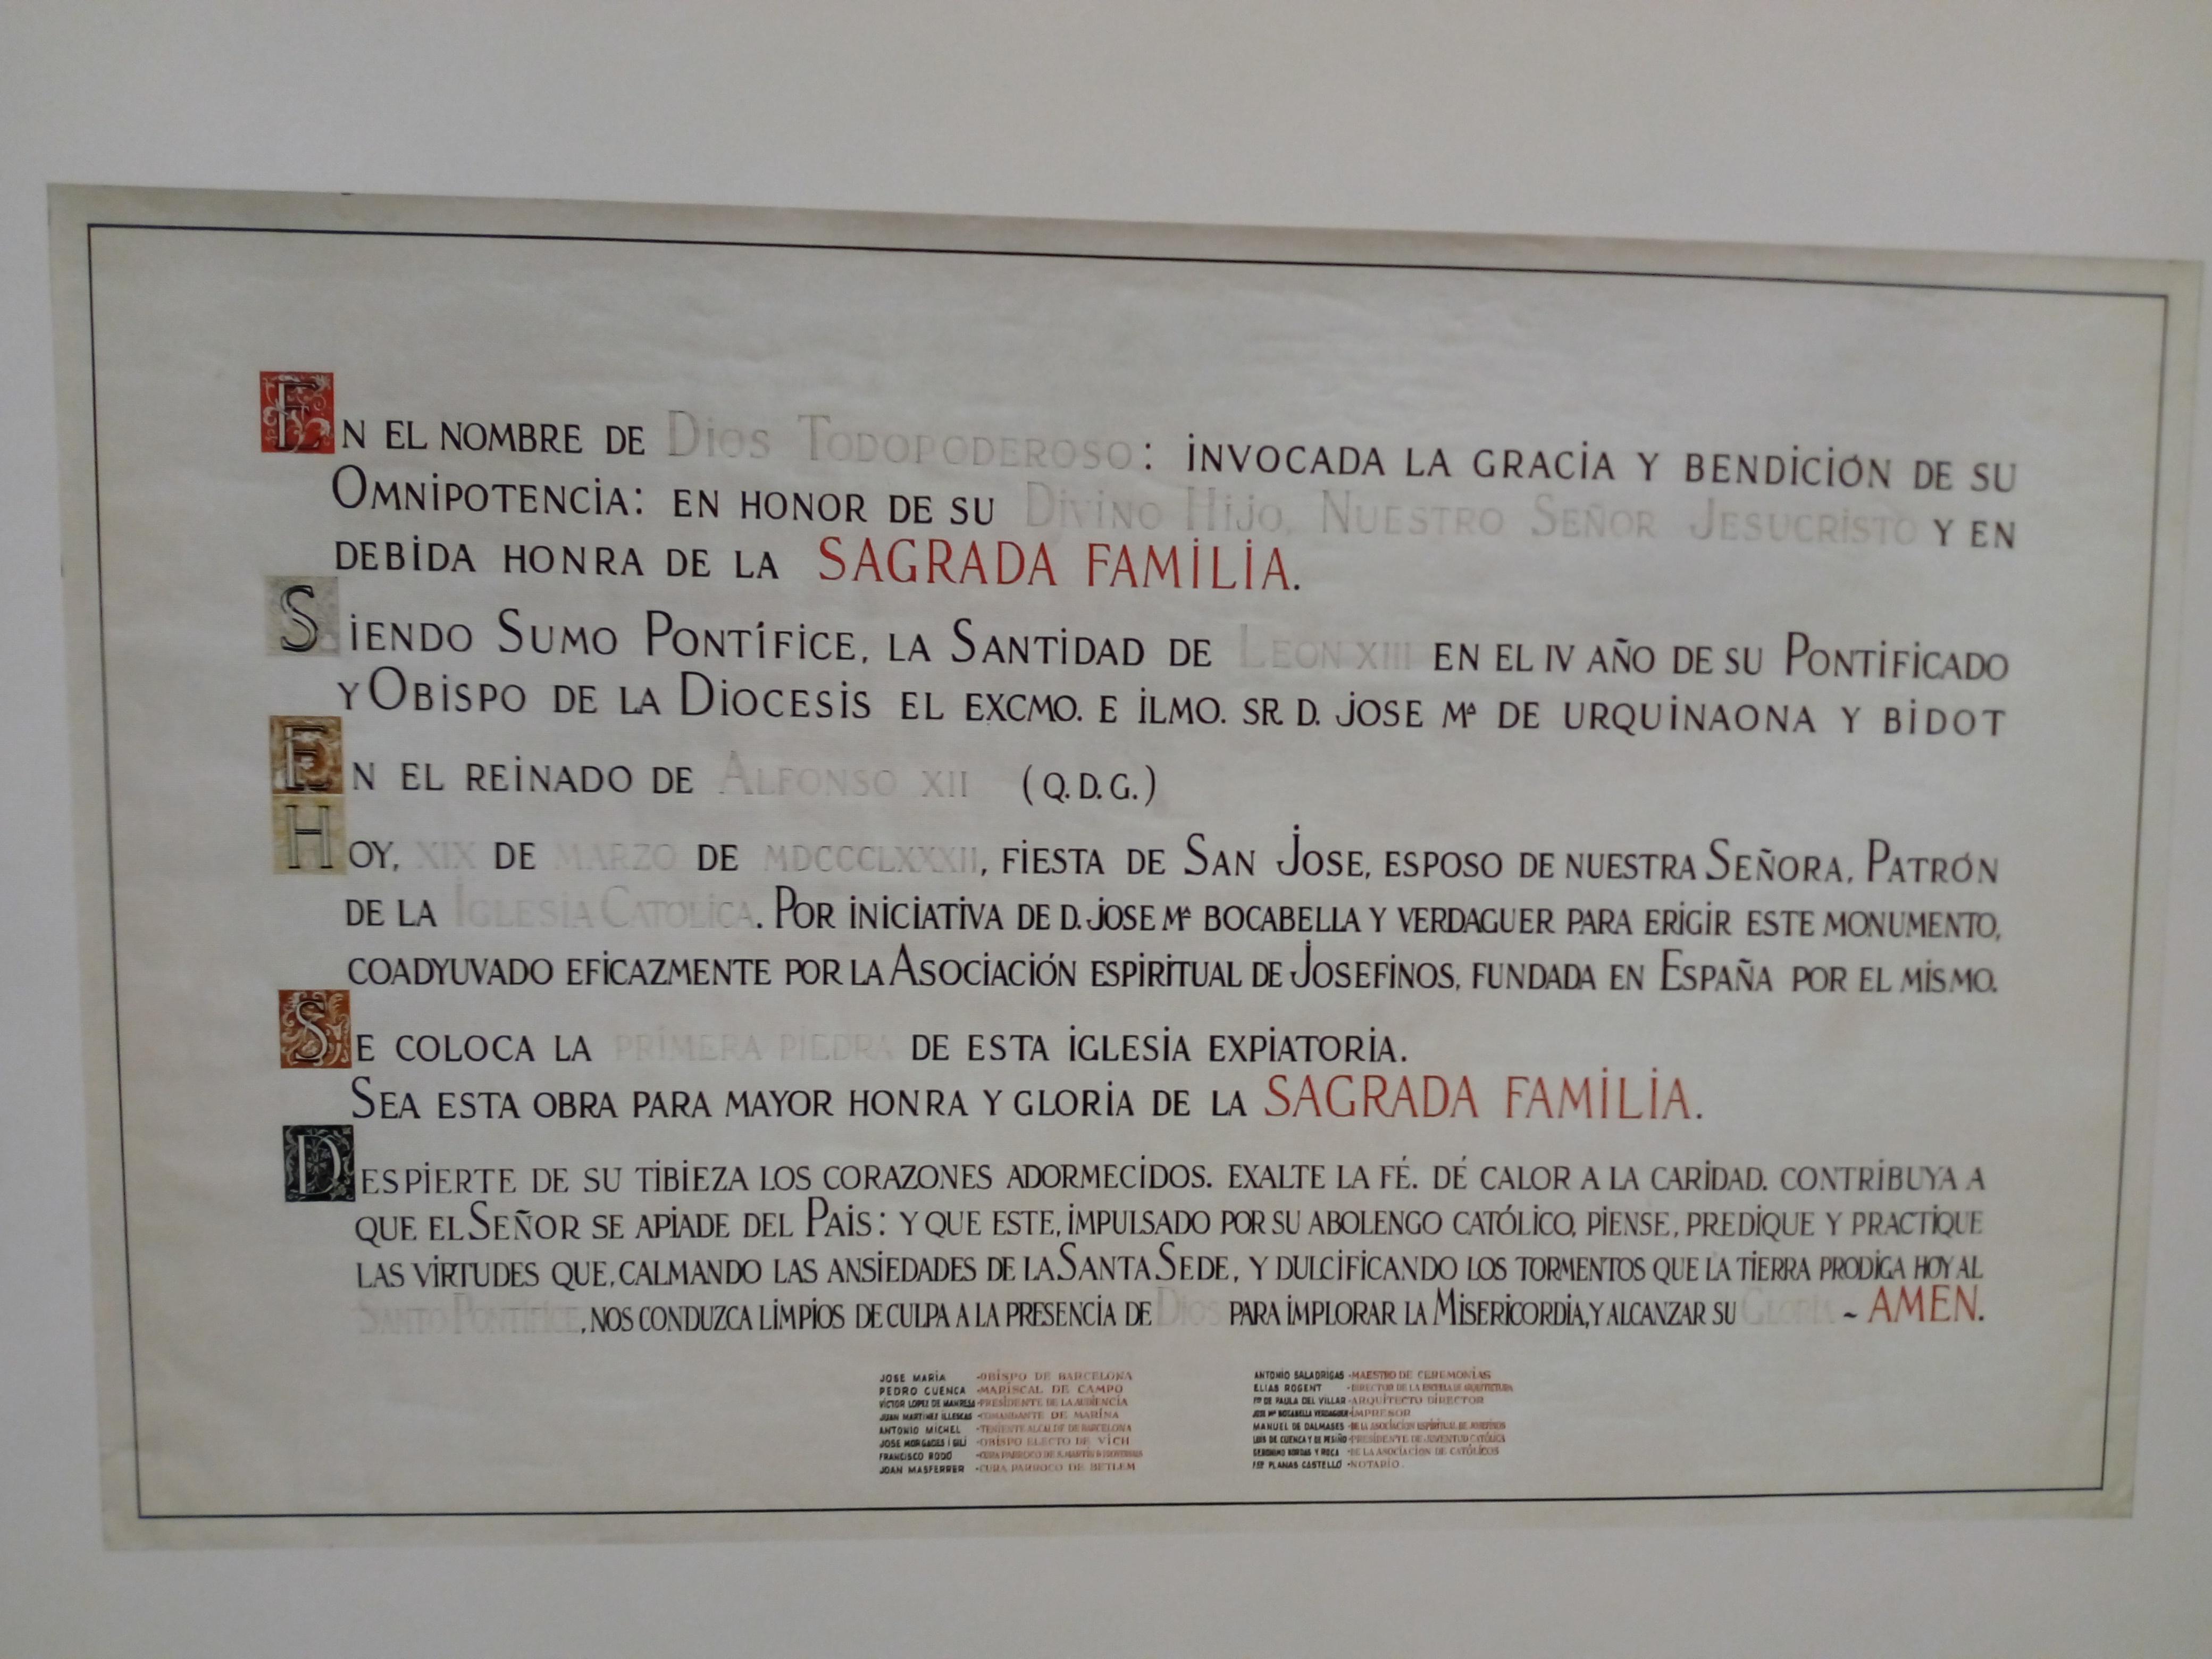 EN EL NOMBRE DE DIOS TODOPODEROSO: INVOCADA LA GRACIA Y BENDICIÓN DE SU
OMNIPOTENCIA: EN HONOR DE SU DIVINO HIJO, NUESTRO SEÑOR JESUCRISTO Y EN
DEBIDA HONRA DE LA SAGRADA FAMILIA.
SIENDO SUMO PONTÍFICE, LA SANTIDAD DE LEON XIII EN EL IV AÑO DE SU PONTIFICADO
Y OBISPO DE LA DIOCESIS EL EXCMO. E ILMO. SR. D. JOSE Mª DE URQUINAONA Y BIDOT
EN EL REINADO DE ALFONSO XII (Q.D.G.)
HOY, XIX DE MARZO DE MDCCCLXXXII, FIESTA DE SAN JOSE, ESPOSO DE NUESTRA SEÑORA, PATRÓN
DE LA IGLESIA CATOLICA. POR INICIATIVA DE D. JOSE Mª BOCABELLA Y VERDAGUER PARA ERIGIR ESTE MONUMENTO,
COADYUVADO EFICAZMENTE POR LA ASOCIACIÓN ESPIRITUAL DE JOSEFINOS, FUNDADA EN ESPAÑA POR EL MISMO.
SE COLOCA LA PRIMERA PIEDRA DE ESTA IGLESIA EXPIATORIA.
SEA ESTA OBRA PARA MAYOR HONRA Y GLORIA DE LA SAGRADA FAMILIA.
DESPIERTE DE SU TIBIEZA LOS CORAZONES ADORMECIDOS. EXALTE LA FÉ. DÉ CALOR A LA CARIDAD. CONTRIBUYA A
QUE EL SEÑOR SE APIADE DEL PAIS: Y QUE ESTE, IMPULSADO POR SU ABOLENGO CATÓLICO, PIENSE, PREDIQUE Y PRACTIQUE
LAS VIRTUDES QUE, CALMANDO LAS ANSIEDADES DE LA SANTA SEDE, Y DULCIFICANDO LOS TORMENTOS QUE LA TIERRA PRODIGA HOY AL
SANTO PONTIFICE, NOS CONDUZCA LIMPIOS DE CULPA A LA PRESENCIA DE DIOS PARA IMPLORAR LA MISERICORDIA, Y ALCANZAR SU GLORIA ~ AMEN.
JOSE MARÍA - OBISPO DE BARCELONA
PEDRO CUENCA - MARISCAL DE CAMPO
VICTOR LOPEZ DE MANRESA - PRESIDENTE DE LA AUDIENCIA
JUAN MARTINEZ ILLESCAS - COMANDANTE DE MARINA
ANTONIO MICHEL - TENIENTE ALCALDE DE BARCELONA
JOSE MORGADES I GILI - OBISPO ELECTO DE VICH
FRANCISCO RODÓ - CURA PARROCO DE S. MARTIN D
JOAN MASFERRER - CURA PARROCO DE BETLEM
ANTONIO SALADRIGAS - MAESTRO DE CEREMONIAS
ELIAS ROGENT - DIRECTOR DE LA ESCUELA DE ARQUITECTURA
DE PAULA DEL VILLAR - ARQUITECTO DIRECTOR
JOSE Mª BOCABELLA VERDAGUER - IMPRESOR
MANUEL DE DALMASES - DE LA ASOCIACION ESPIRITUAL DE JOSEFINOS
LUIS DE CUENCA Y DE PESIÑO - PRESIDENTE DE JUVENTUD CATÓLICA
GERONIMO BORDAS Y ROCA - DE LA ASOCIACION DE CATÓLICOS
PLANAS CASTELLÓ - NOTARIO.